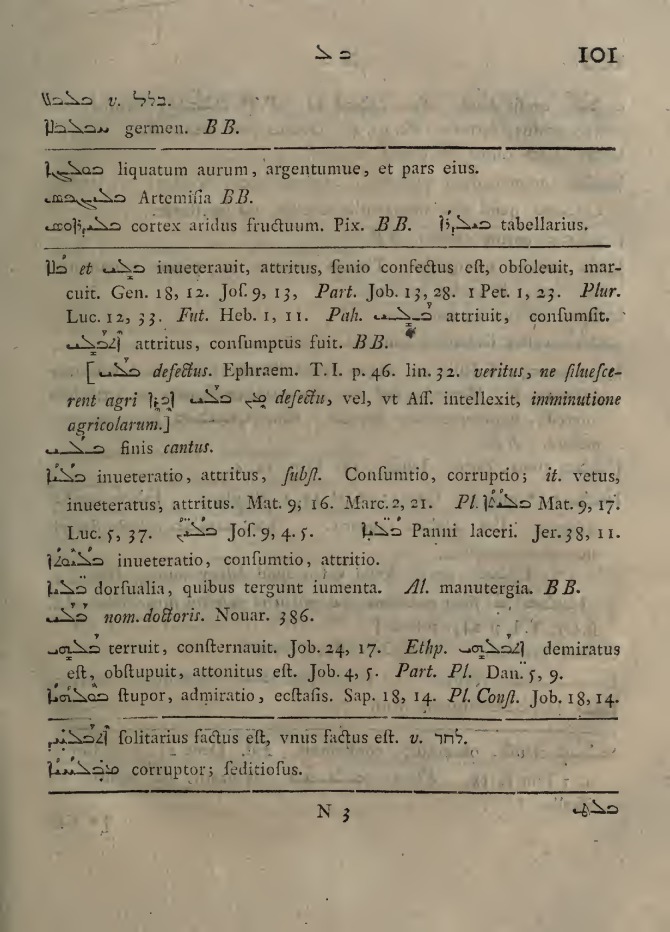 ܒܠ 101
v. בלל.
germen. BB.
liquatum aurum, argentumue, et pars eius.
Artemiſia BB.
cortex aridus fructuum. Pix. BB. tabellarius.
ܒܠܐ et ܒܠܝ inueterauit, attritus, ſenio confectus eſt, obſoleuit, mar-
cuit. Gen. 18, 12. Joſ. 9, 13, Part. Job. 13, 28. 1 Pet. 1, 23. Plur.
Luc. 12, 33. Fut. Heb. 1, 11. Pah. ܒܠܝ attriuit, conſumſit.
ܐܬܒܠܝ attritus, conſumptus fuit. BB.
[ defectus. Ephraem. T. I. p. 46. lin. 32. veritus, ne ſilueſce-
rent agri ܐܟܪ̈ܐ ܒܠܝ ܡܢ defectu, vel, vt Aſſ. intellexit, imminutione
agricolarum.]
finis cantus.
ܒܠܝܐ inueteratio, attritus, ſubſt. Conſumtio, corruptio; it. vetus,
inueteratus, attritus. Mat. 9, 16. Marc. 2, 21. Pl. Mat. 9, 17.
Luc. 5, 37. Joſ. 9, 4. 5. ܒܠܝܐ Panni laceri. Jer. 38, 11.
inueteratio, conſumtio, attritio.
ܒܠܝܐ dorſualia, quibus tergunt iumenta. Al. manutergia. BB.
ܒܠܝ nom. doctoris. Nouar. 386.
terruit, conſternauit. Job. 24, 17. Ethp. demiratus
eſt, obſtupuit, attonitus eſt. Job. 4, 5. Part. Pl. Dan. 5, 9.
ſtupor, admiratio, ecſtaſis. Sap. 18, 14. Pl. Conſt. Job. 18, 14.
ſolitarius factus eſt, vnus factus eſt. v. לחר.
corruptor; ſeditioſus.
N 3